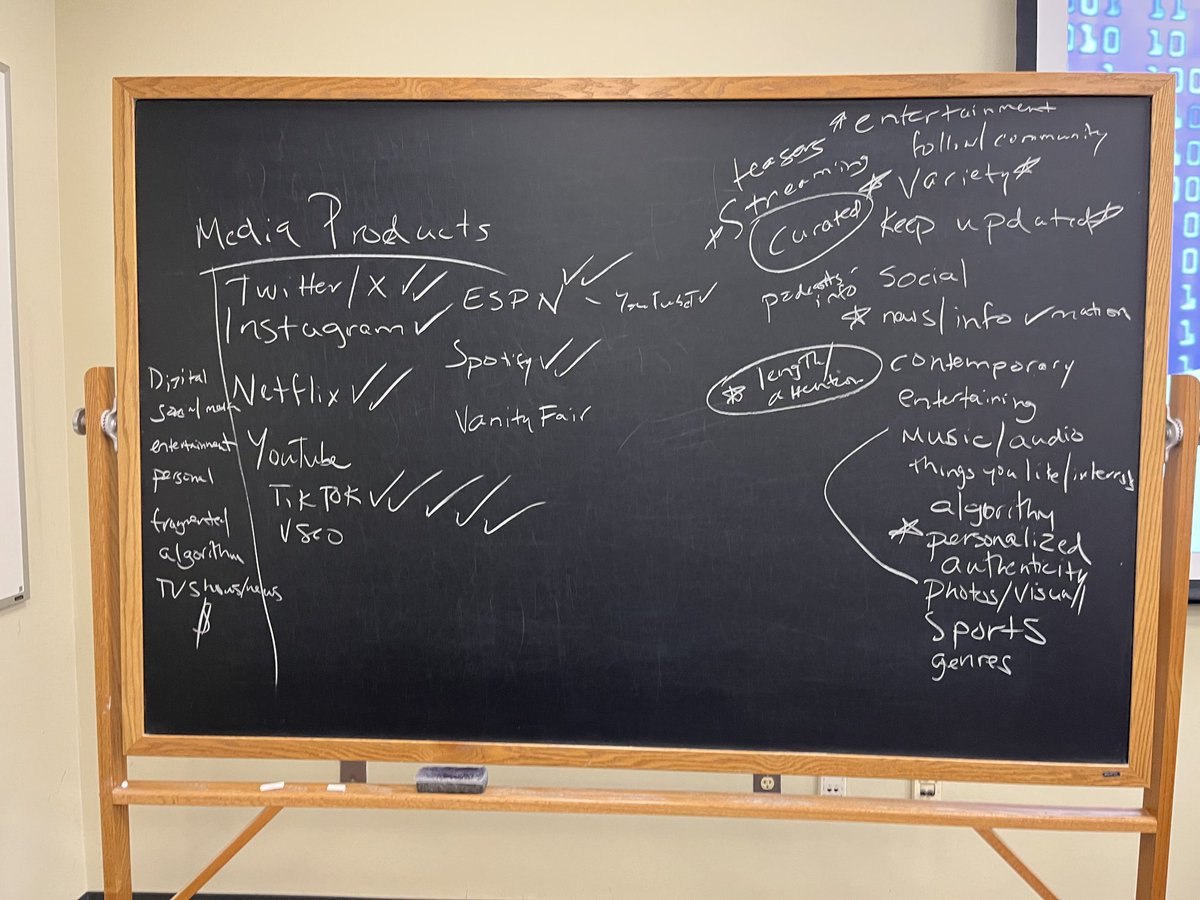 Media Products
Twitter/X ✓✓
Instagram ✓
Netflix ✓✓
YouTube
TikTok ✓✓✓✓✓
VSCO
ESPN ✓✓ - YouTubeTV ✓
Spotify ✓✓
Vanity Fair
Digital
social media
entertainment
personal
fragmented
algorithm
TV shows/news
$
teasers
* Streaming
curated
podcasts
info
* length/
attention
* entertainment
follow/community
* Variety *
keep updated *
Social
* news/information
contemporary
entertaining
music/audio
things you like/interests
algorithm
* personalized
authenticity
photos/visual
Sports
genres